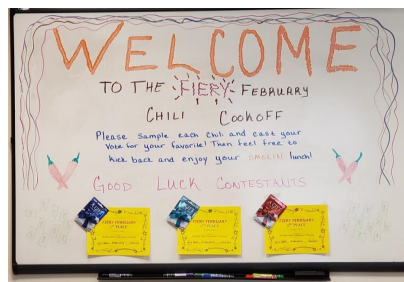 WELCOME
TO THE FIERY FEBRUARY
CHILI COOKOFF
Please sample each chili and cast your
vote for your favorite! Then feel free to
kick back and enjoy your SMOKIN lunch!
GOOD LUCK CONTESTANTS
FIERY FEBRUARY
PLACE
FIERY FEBRUARY
PLACE
FIERY FEBRUARY
PLACE